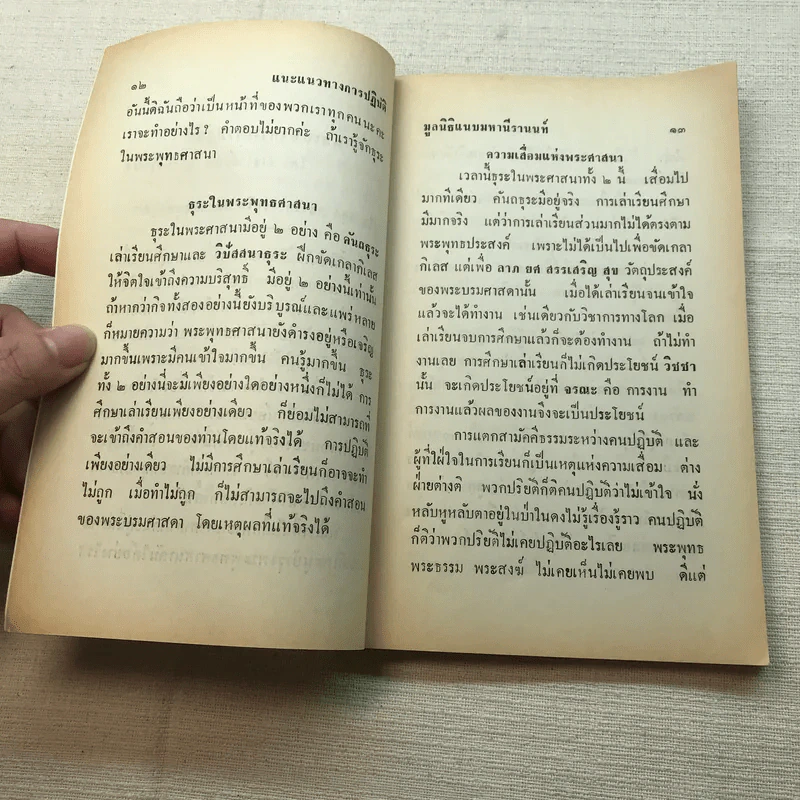 ๑๒ แนะแนวทางการปฏิบัติ
อันนี้ดิฉันถือว่าเป็นหน้าที่ของพวกเราทุกคนนะคะ
เราจะทำอย่างไร? คำตอบไม่ยากค่ะ ถ้าเรารู้จักธุระ
ในพระพุทธศาสนา
ธุระในพระพุทธศาสนา
ธุระในพระศาสนามีอยู่ ๒ อย่าง คือ คันถธุระ
เล่าเรียนศึกษาและ วิปัสสนาธุระ ฝึกขัดเกลากิเลส
ให้จิตใจเข้าถึงความบริสุทธิ์ มีอยู่ ๒ อย่างนี้เท่านั้น
ถ้าหากว่ากิจทั้งสองอย่างนี้ยังบริบูรณ์และแพร่หลาย
ก็หมายความว่า พระพุทธศาสนายังดำรงอยู่หรือเจริญ
มากขึ้นเพราะมีคนเข้าใจมากขึ้น คนรู้มากขึ้น ธุระ
ทั้ง ๒ อย่างนี้จะมีเพียงอย่างใดอย่างหนึ่งก็ไม่ได้ การ
ศึกษาเล่าเรียนเพียงอย่างเดียว ก็ย่อมไม่สามารถที่
จะเข้าถึงคำสอนของท่านโดยแท้จริงได้ การปฏิบัติ
เพียงอย่างเดียว ไม่มีการศึกษาเล่าเรียนก็อาจจะทำ
ไม่ถูก เมื่อทำไม่ถูก ก็ไม่สามารถจะไปถึงคำสอน
ของพระบรมศาสดา โดยเหตุผลที่แท้จริงได้
มูลนิธิแนบมหานีรานนท์ ๑๓
ความเสื่อมแห่งพระศาสนา
เวลานี้ธุระในพระศาสนาทั้ง ๒ นี้ เสื่อมไป
มากทีเดียว คันถธุระมีอยู่จริง การเล่าเรียนศึกษา
มีมากจริง แต่ว่าการเล่าเรียนส่วนมากไม่ได้ตรงตาม
พระพุทธประสงค์ เพราะไม่ได้เป็นไปเพื่อขัดเกลา
กิเลส แต่เพื่อ ลาภ ยศ สรรเสริญ สุข วัตถุประสงค์
ของพระบรมศาสดานั้น เมื่อได้เล่าเรียนจนเข้าใจ
แล้วจะได้ทำงาน เช่นเดียวกับวิชาการทางโลก เมื่อ
เล่าเรียนจบการศึกษาแล้วก็จะต้องทำงาน ถ้าไม่ทำ
งานเลย การศึกษาเล่าเรียนก็ไม่เกิดประโยชน์ วิชชา
นั้น จะเกิดประโยชน์อยู่ที่ จรณะ คือ การงาน ทำ
การงานแล้วผลของงานจึงจะเป็นประโยชน์
การแตกสามัคคีธรรมระหว่างคนปฏิบัติ และ
ผู้ที่ใฝ่ใจในการเรียนก็เป็นเหตุแห่งความเสื่อม ต่าง
ฝ่ายต่างติ พวกปริยัติก็ติคนปฏิบัติว่าไม่เข้าใจ นั่ง
หลับหูหลับตาอยู่ในป่าในดงไม่รู้เรื่องรู้ราว คนปฏิบัติ
ก็ติว่าพวกปริยัติไม่เคยปฏิบัติอะไรเลย พระพุทธ
พระธรรม พระสงฆ์ ไม่เคยเห็นไม่เคยพบ ดีแต่